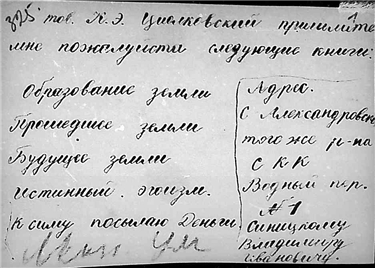 325 1
тов. К. Э. Циолковский пришлите
мне пожалуйста следующие книги:
Образование земли
Прошедшее земли
Будущее земли
Истинный эгоизм.
К сему посылаю Деньги
Адрес.
С Александровск
того же р-на
С К К
Водный пер.
№ 1
Синицкому
Владимиру
Ивановичу.